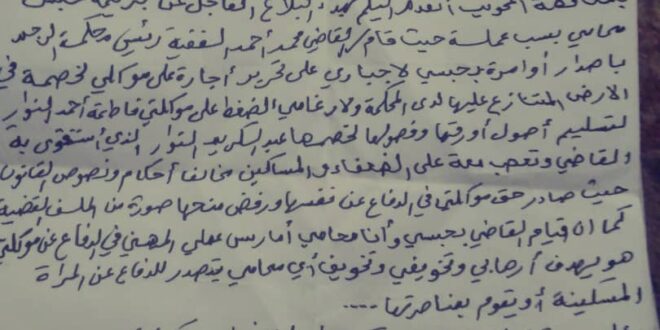 أتقدم اليكم بهذا البلاغ العاجل عن جريمة حبس
محامي بسبب عمله حيث قام القاضي محمد أحمد الفقيه رئيس محكمة
باصدار أوامره بحبسي لإجباري على تحرير أجارة على موكلتي لخصمه في
الارض المتنازع عليها لدى المحكمة ولارغامي الضغط على موكلتي فاطمة أحمد النوار
لتسليم أصول أورقها وفصولها لخصمها عبدالكريم النوار الذي أستقوى به
والقاضي وتعصب معه على الضعفاء والمساكين مخالف أحكام ونصوص القانون
حيث صادر حق موكلتي في الدفاع عن نفسها ورفض منحها صورة من الملف القضية
كما ان قيام القاضي بحبسي وأنا محامي أمارس عملي المهني في الدفاع عن موكلتي
هو يهدف أرهابي وتخويفي وتخويف أي محامي يتصدر للدفاع عن المرأة
المسكينة أو يقوم بمناصرتها ....